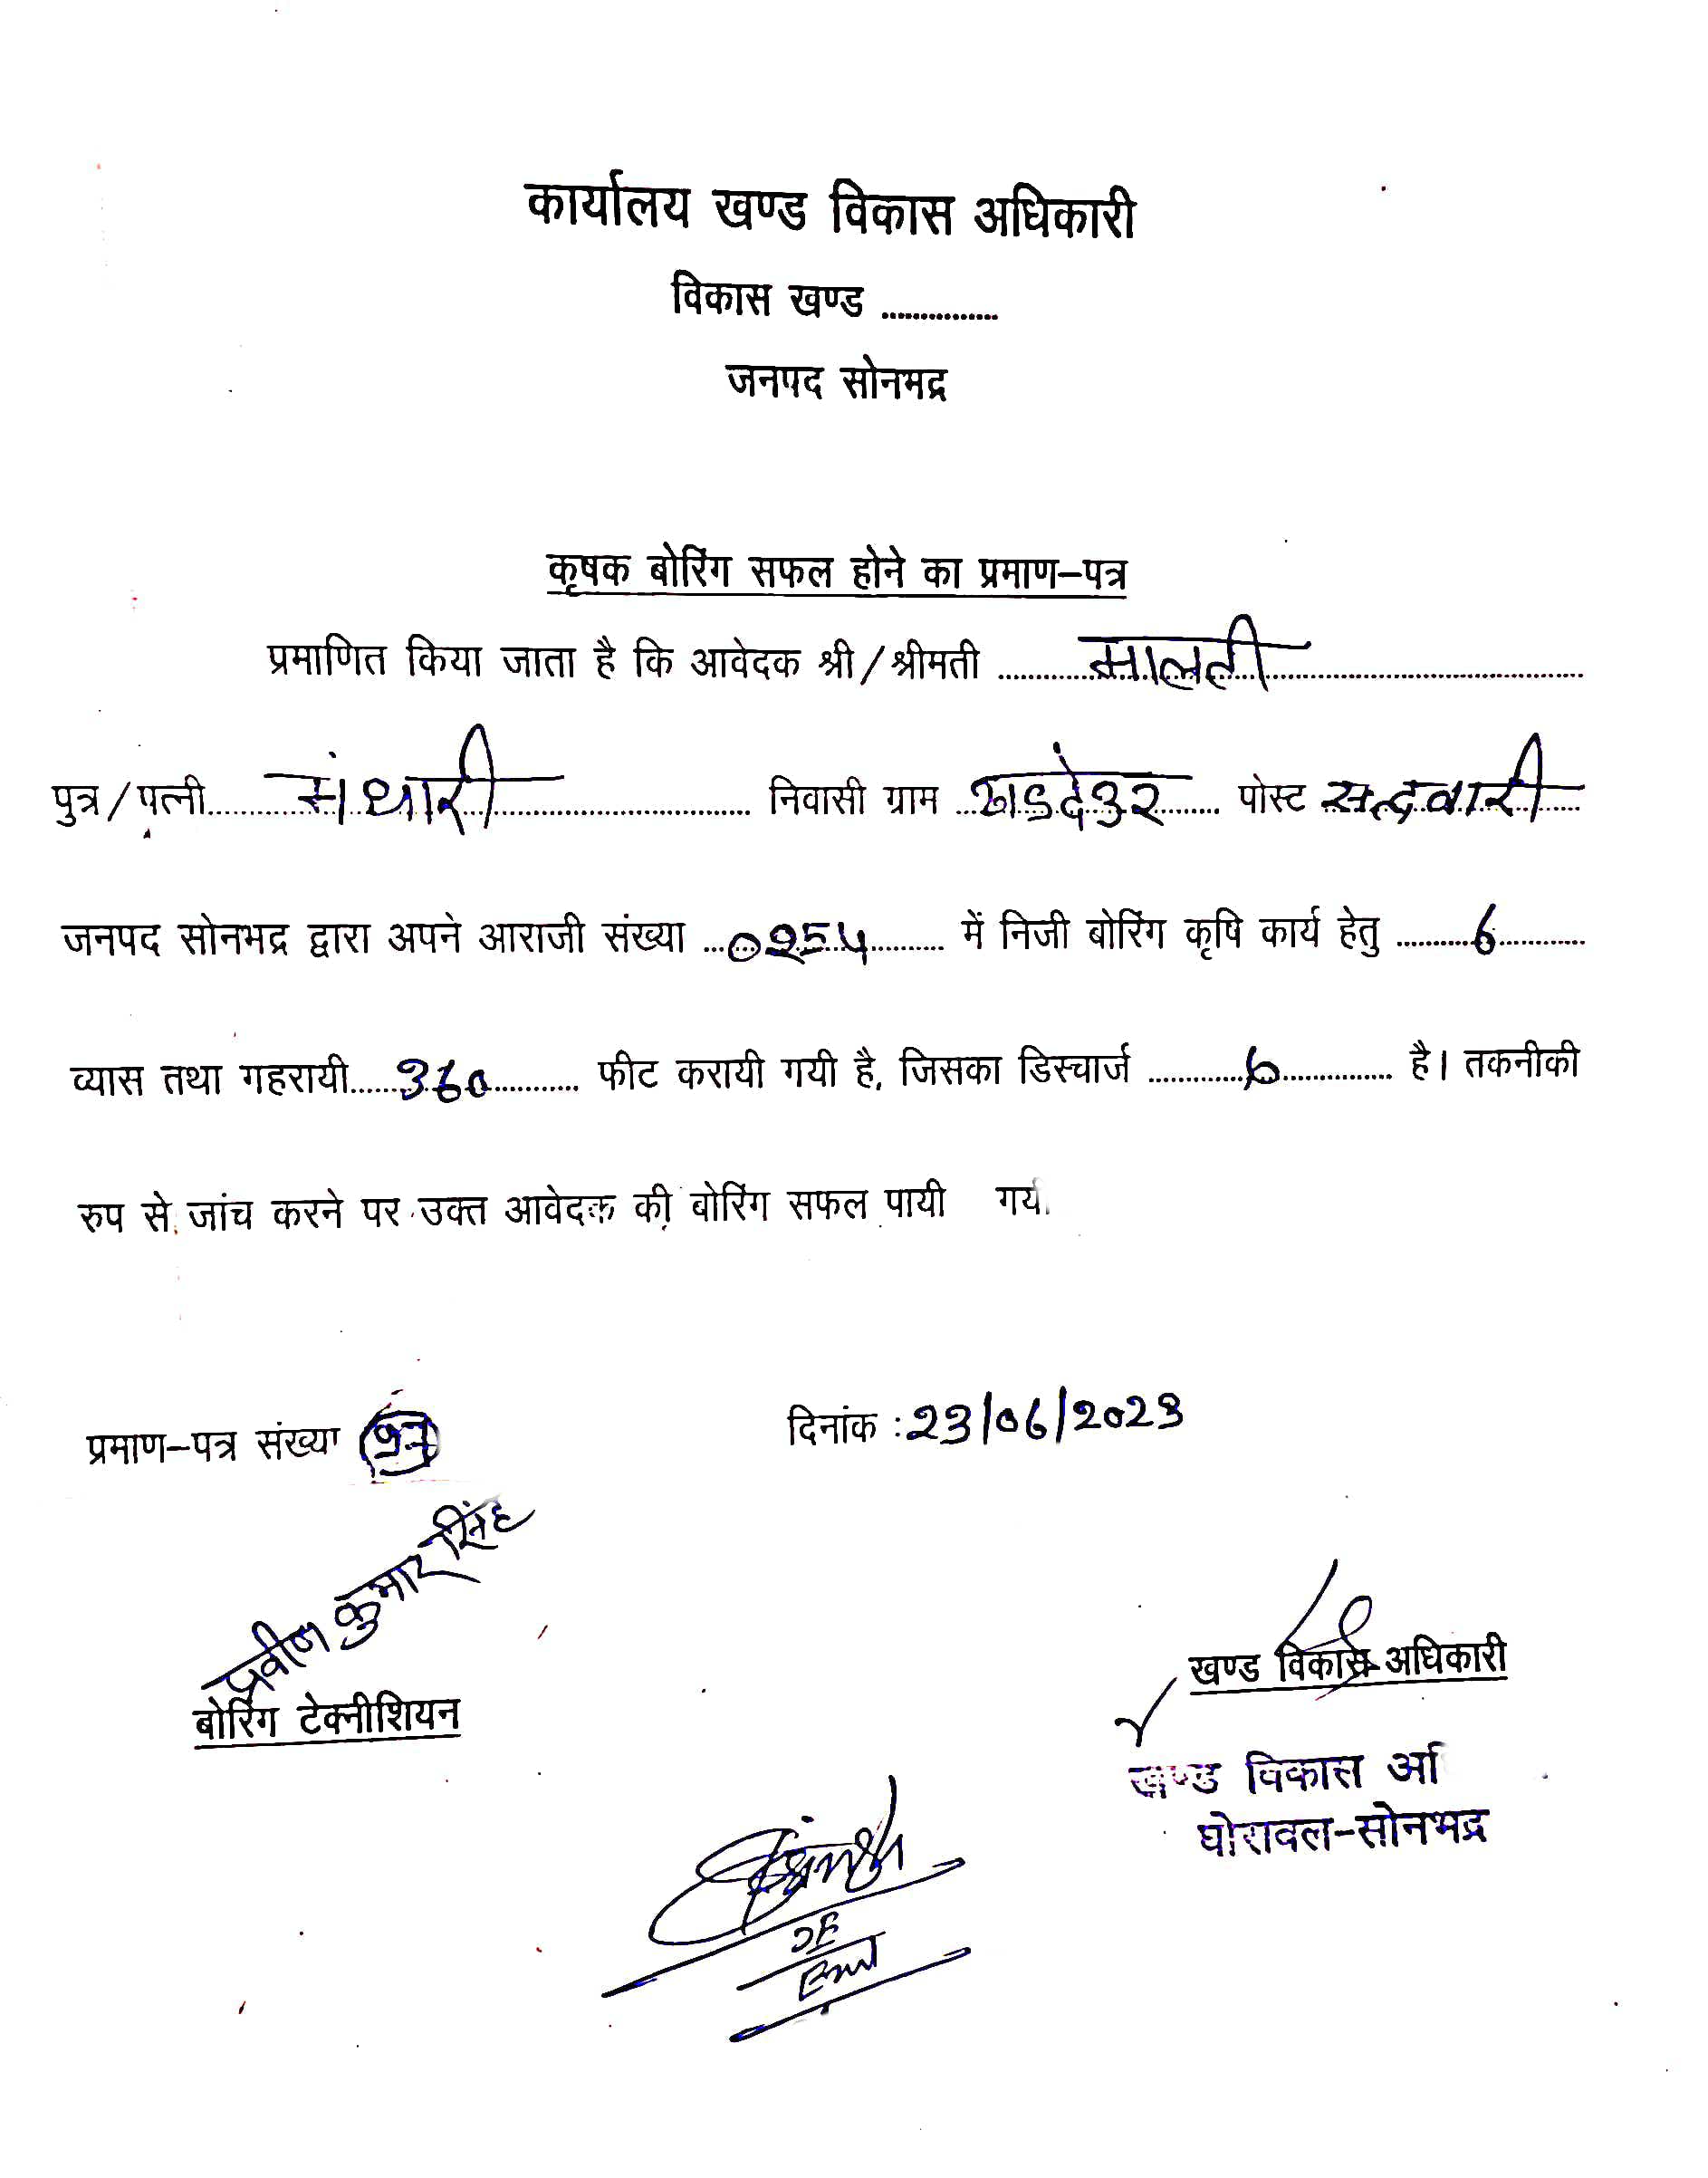 कार्यालय खण्ड विकास अधिकारी
विकास खण्ड ...............
जनपद सोनभद्र
कृषक बोरिंग सफल होने का प्रमाण-पत्र
प्रमाणित किया जाता है कि आवेदक श्री/श्रीमती मालती
पुत्र/पत्नी मंधारी निवासी ग्राम खडदेउर पोस्ट सद्वारी
जनपद सोनभद्र द्वारा अपने आराजी संख्या 0254 में निजी बोरिंग कृषि कार्य हेतु 6
व्यास तथा गहरायी 360 फीट करायी गयी है, जिसका डिस्चार्ज 6 है। तकनीकी
रुप से जांच करने पर उक्त आवेदक की बोरिंग सफल पायी गयी
प्रमाण-पत्र संख्या
दिनांक : 23/06/2023
प्रवीण कुमार सिंह
बोरिंग टेक्नीशियन
खण्ड विकास अधिकारी
खण्ड विकास अि
घोरावल-सोनभद्र